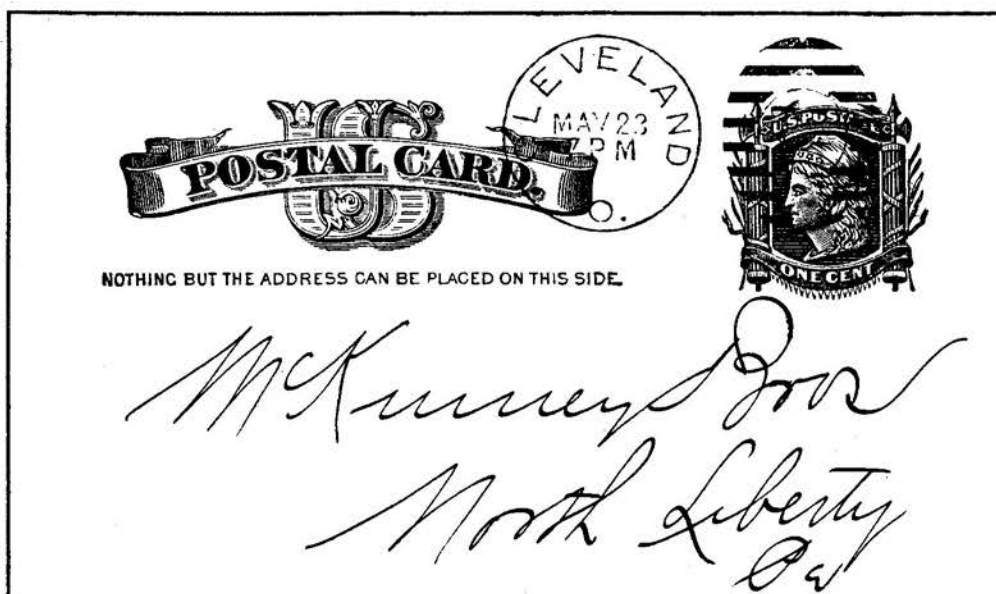 US
POSTAL CARD.
CLEVELAND
MAY 23
7 PM
O.
U.S. POSTAGE
ONE CENT
NOTHING BUT THE ADDRESS CAN BE PLACED ON THIS SIDE.
McKinney Bros
North Liberty
Pa